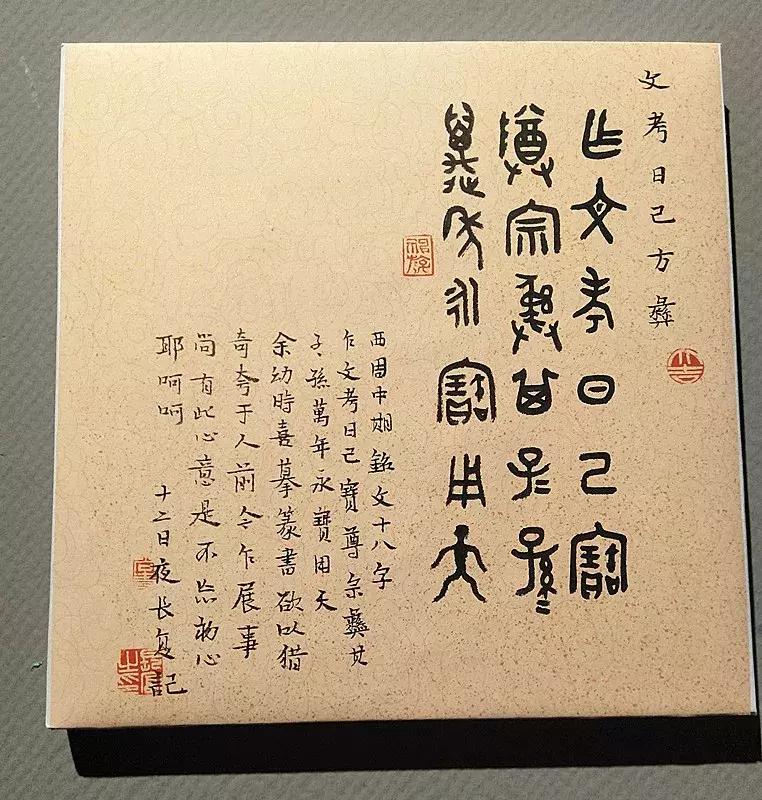 文考日己方彝
乍文考日己寶
尊宗彝其子孫
萬年永寶用天
西周中期銘文十八字
乍文考日己寶尊宗彝其
子孫萬年永寶用天
余幼時喜摹篆書欲以猎
奇夸于人前今乍展事
尚有此心意是不忘初心
耶呵呵 十二日夜长复記